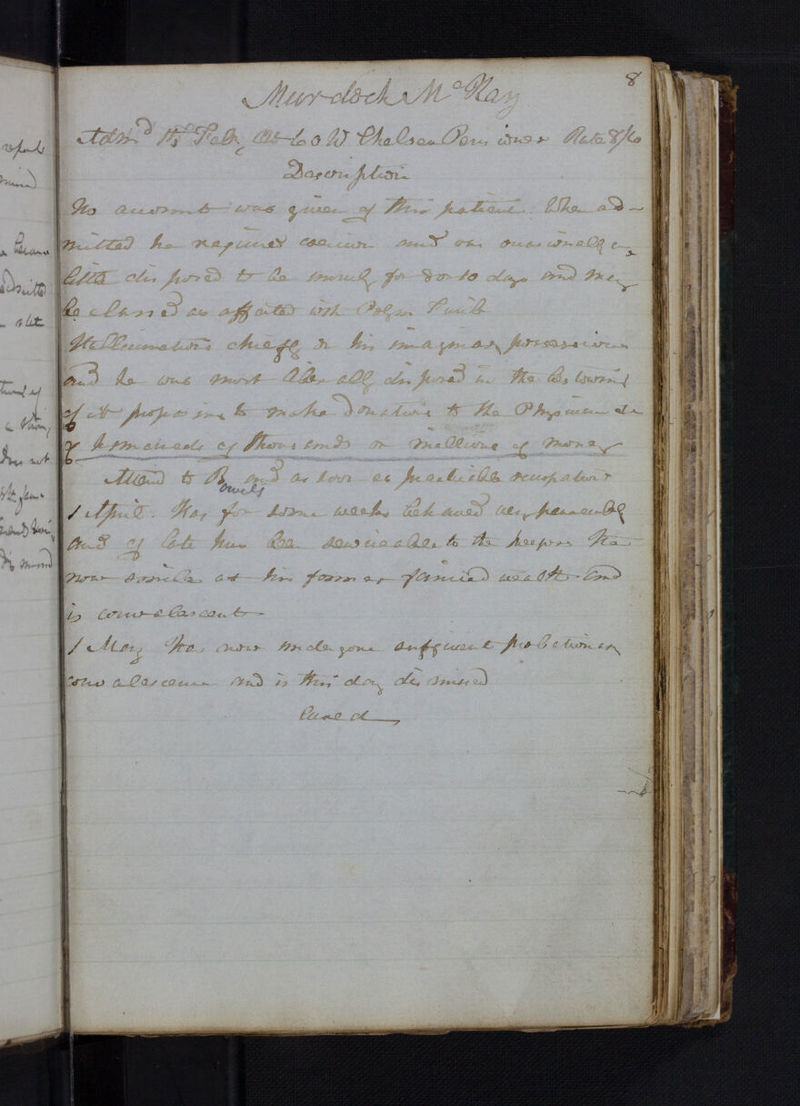 8
Murdoch McKay
Admd Feby Chelsea Pensioner Rate 8/10
Description
No account was given of this patient. When ad-
mitted he required coercion and was occasionally a
little disposed to be unruly for 8 or 10 days and may
be classed as affected with
Hallucinations chiefly on his imaginary possessions
and he was most liberally disposed in the bestowing
of it proposing to make donations to the Physician &c
of hundreds of thousands or millions of money
Attend to Bowels and as soon as practicable occupation
1 April. Has for some weeks behaved very peaceably
and of late has been serviceable to the keepers He
now smiles at his former fancied wealth and
is convalescent
1 May Has now undergone sufficient probationary
convalescence and is this day dismissed
Cured
report
mind
admitted
state
a
does not